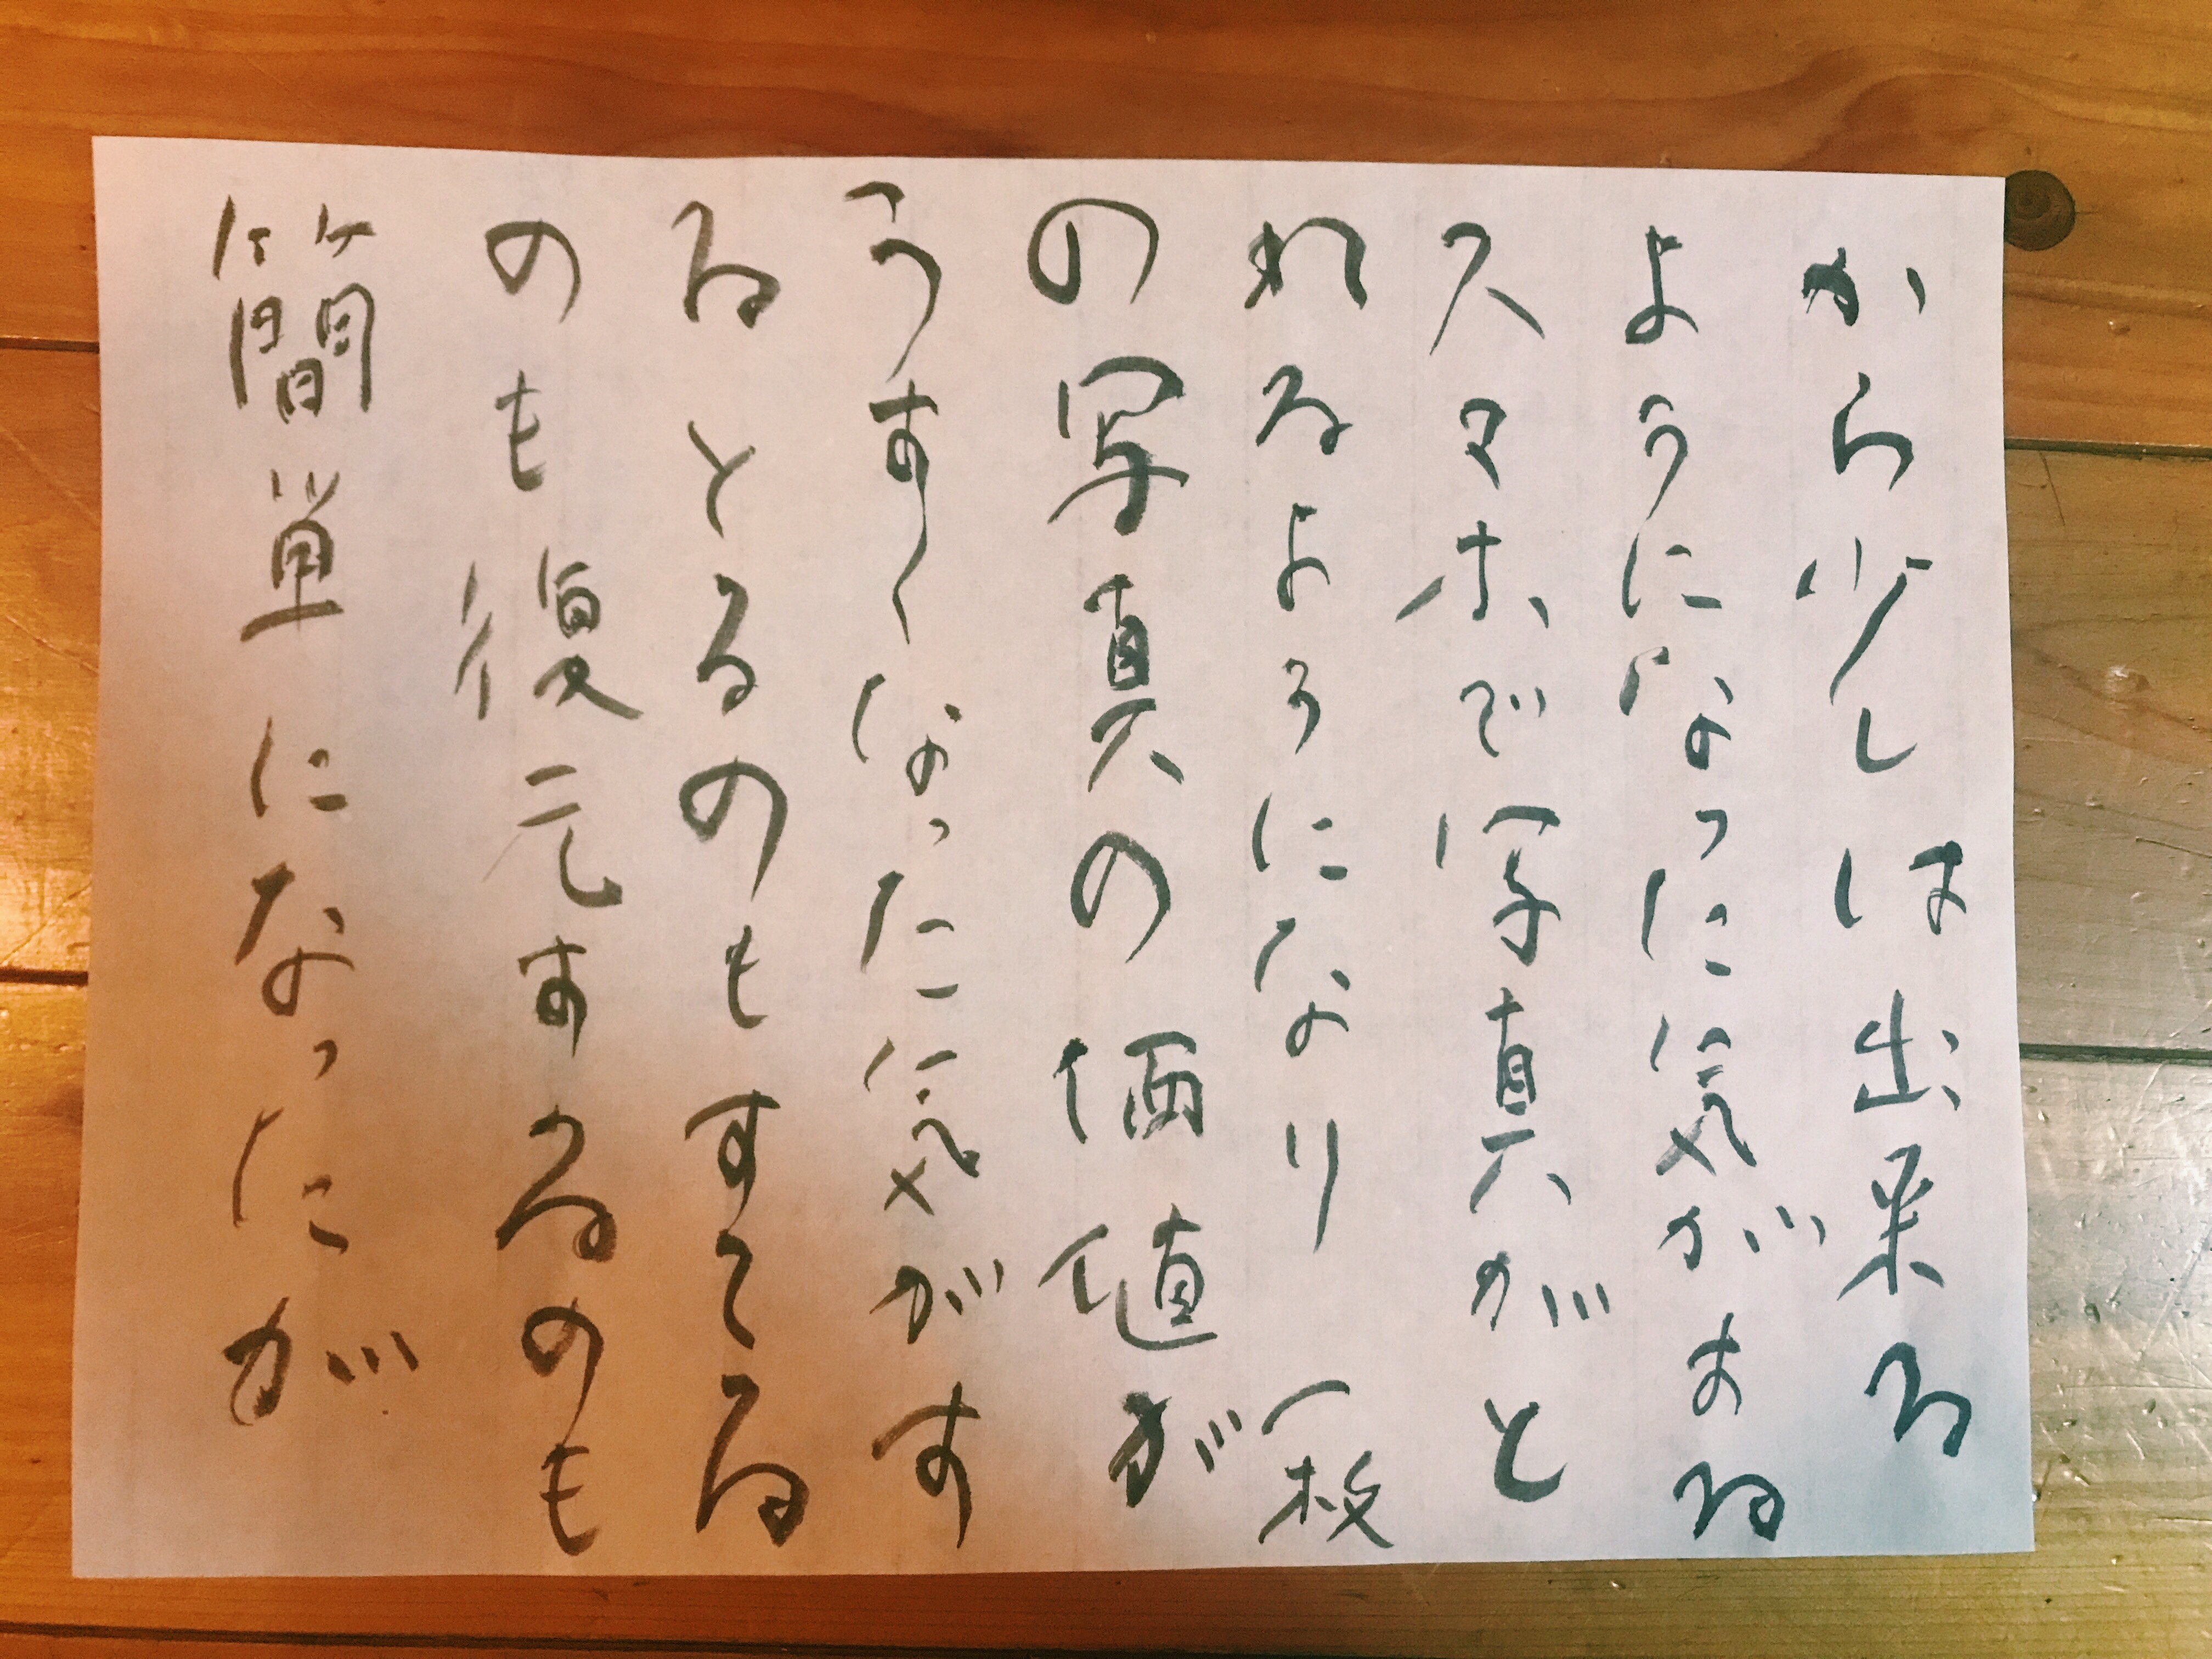 から少しは出来る
ようになった気がする
スマホで写真がと
れるようになり 一枚
の写真の価値が
うすくなった気がす
るとるのもすてる
のも復元するのも
簡単になったが